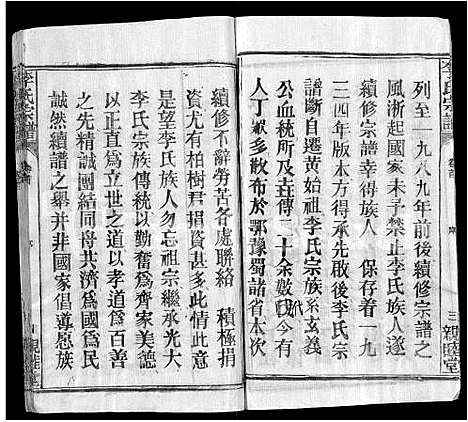 李氏宗譜
列至一九八九年前後續修宗譜之
風漸起國家未予禁止李氏族人遂
續修宗譜幸得族人 保存着一九
三四年版本方得承先啟後李氏宗
譜斷自遷黄始祖李氏宗族系玄義
公血統所及古傳二十余數代
人丁 多散布於鄂豫蜀諸省本次
三 親睦堂
續修不辭勞苦各處聯絡 積極捐
資尤有柏樹君捐資甚多
是望李氏族人勿忘祖宗繼承光大
李氏宗族傳統以勤奮爲齊家美德
以正直爲立世之道以孝道爲百善
之先精誠團結同舟共濟爲國爲民
誠然續譜之舉并非國家倡導愿族
李氏宗譜